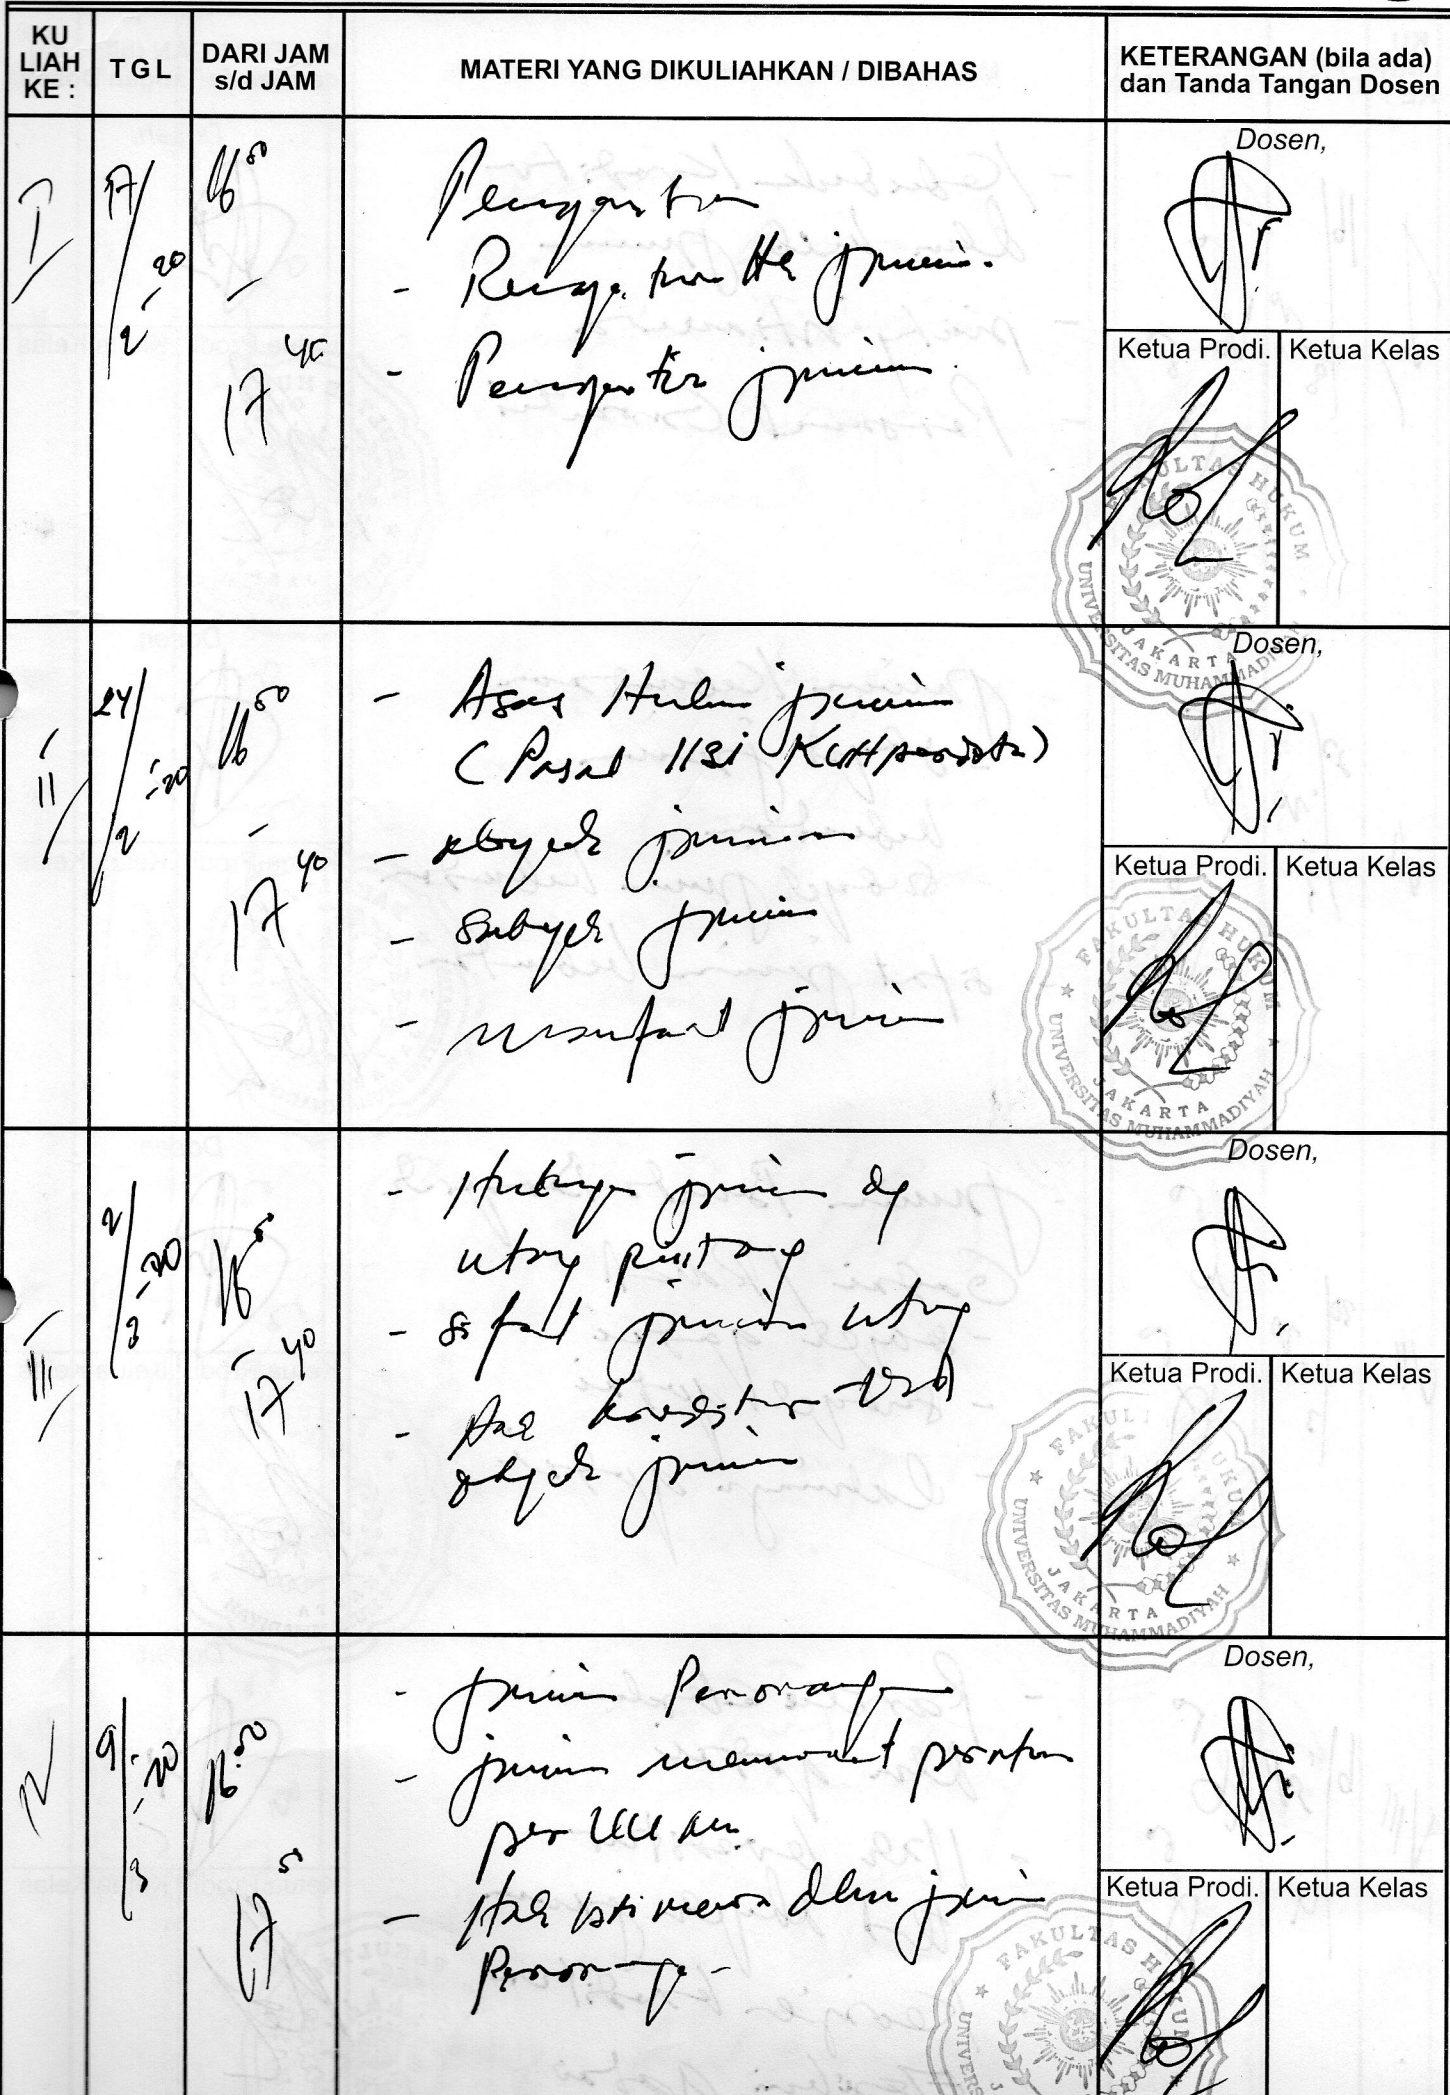 KU
LIAH
KE :
TGL
DARI JAM
s/d JAM
MATERI YANG DIKULIAHKAN / DIBAHAS
KETERANGAN (bila ada)
dan Tanda Tangan Dosen
I
17/2-20
16 50
-
17 40
Pengantar
- jaminan
- jaminan
Dosen,
Ketua Prodi.
Ketua Kelas
FAKULTAS HUKUM
UNIVERSITAS MUHAMMADIYAH
JAKARTA
II
24/2-20
16 50
-
17 40
- Asas Hukum jaminan
( Pasal 1131 KUHPerdata)
- obyek jaminan
- Subyek jaminan
- manfaat jaminan
Dosen,
Ketua Prodi.
Ketua Kelas
FAKULTAS HUKUM
UNIVERSITAS MUHAMMADIYAH
JAKARTA
III
2/3-20
16 50
-
17 40
- Hubungan jaminan dg
utang piutang
- sifat jaminan utang
- Hak kreditur
obyek jaminan
Dosen,
Ketua Prodi.
Ketua Kelas
FAKULTAS HUKUM
UNIVERSITAS MUHAMMADIYAH
JAKARTA
IV
9/3-20
16.50
17
- jaminan Perorangan
- jaminan menurut peraturan
per UU an
- Hak istimewa dlm jaminan
Perorangan -
Dosen,
Ketua Prodi.
Ketua Kelas
FAKULTAS HUKUM